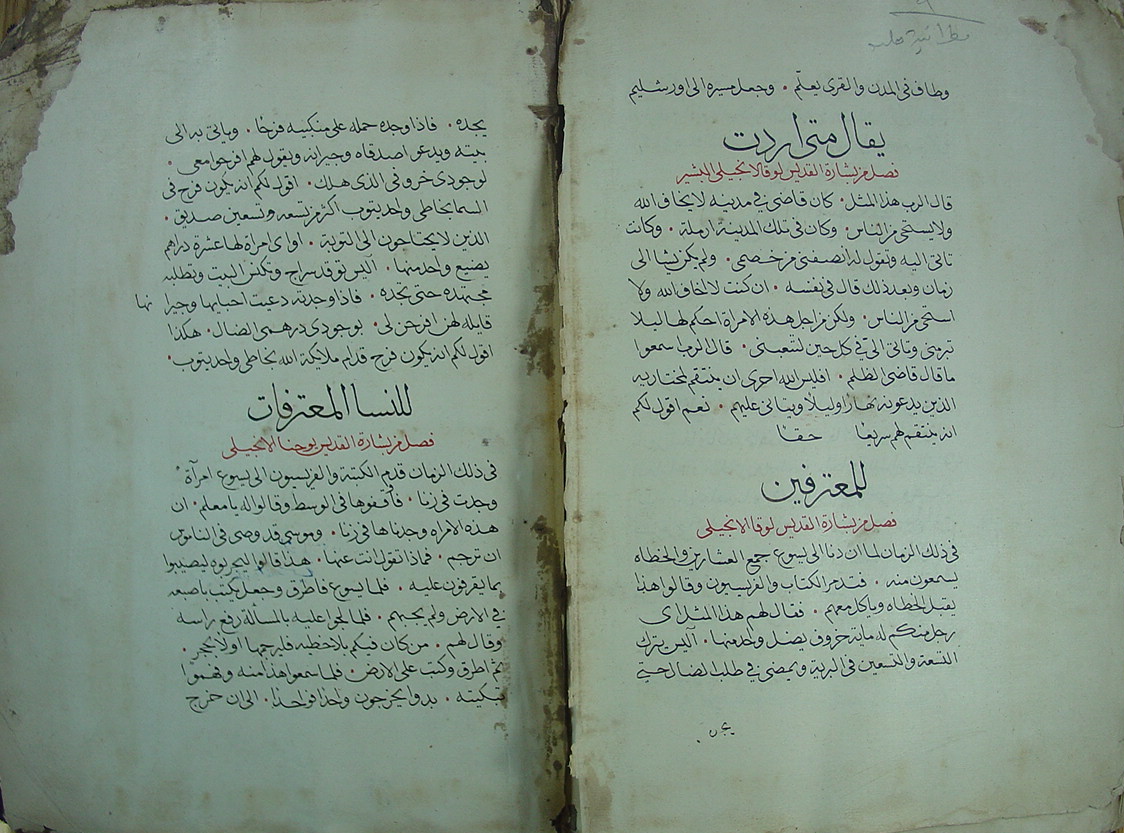 مطرانية حلب
وطاف في المدن والقرى يعلّم . وجعل مسيره الى اورشليم
يقال متى اردت
فصل من بشارة القديس لوقا الانجيلي البشير
قال الرب هذا المثل . كان قاضي في مدينه لا يخاف الله
ولا يستحي من الناس . وكان في تلك المدينة ارملة . وكانت
تاتي اليه وتقول له انصفني من خصمي . ولم يكن يشا الى
زمان وبعد ذلك قال في نفسه . ان كنت لا اخاف الله ولا
استحي من الناس . ولكن من اجل هذه الامراة احكم لها ليلا
تبرمني وتاتي اليّ في كل حين لتتعبني . قال الرب اسمعوا
ما قال قاضي الظلم . افليس الله احرى ان ينتقم لمختاريه
الذين يدعونه نهارًا وليلاً ويتانى عليهم . نعم اقول لكم
انه ينتقم لهم سريعًا حقًا
للمعترفين
فصل من بشارة القديس لوقا الانجيلي
في ذلك الزمان لما ان دنا الى يسوع جمع العشارين والخطاه
يسمعون منه . فتذمر الكتاب والفريسيون وقالوا هذا
يقبل الخطاه وياكل معهم . فقال لهم هذا المثل اي
رجل منكم له ماية خروف يضل واحد منها . اليس يترك
التسعة والتسعين في البرية ويمضي في طلب الضال حتى
يجده . فاذا وجده حمله على منكبيه فرحًا . وياتي به الى
بيته ويدعو اصدقاه وجيرانه ويقول لهم افرحوا معي .
لوجودي خروفي الذي هلك . اقول لكم انه يكون فرح في
السما بخاطي واحد يتوب اكثر من تسعه وتسعين صديق .
الذين لا يحتاجون الى التوبة . او اي امراة لها عشرة دراهم
يضيع واحد منها . اليس توقد سراج وتكنس البيت وتطلبه
مجتهده حتى تجده . فاذا وجدته دعيت احبايها وجيرانها
قايله لهن افرحن لي . بوجودي درهمي الضال . هكذا
اقول لكم انه يكون فرح قدام ملايكة الله بخاطي واحد يتوب .
للنسا المعترفات
فصل من بشارة القديس يوحنا الانجيلي
في ذلك الزمان قدم الكتبة والفريسيون الى يسوع امرآة
وجدت في زنا . فأقفوها في الوسط وقالوا له يا معلم . ان
هذه الامراه وجدناها في زنا . وموسى قد وصى في الناموس
ان ترجم . فماذا تقول انت عنها . هذا قالوا ليجربوه ليصيبوا
بما يقرفون عليه . فلما يسوع فأطرق وجعل يكتب باصبعه
في الارض ولم يجبهم . فلما الحوا عليه بالمسالة رفع راسه
وقال لهم . من كان فيكم بلا خطيه فليرجمها اولا بحجر .
ثم اطرق وكتب على الارض . فلما سمعوا هذا منه وفهموا
تبكيته . بدوا يخرجون واحدًا فواحدًا . الى ان خرج